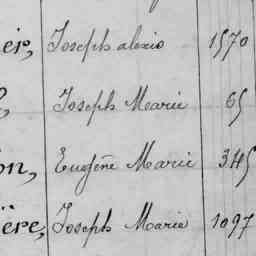 ier, Joseph alexis 1570
, Joseph Marie 65
on, Eugène Marie 345
ière, Joseph Marie 1097